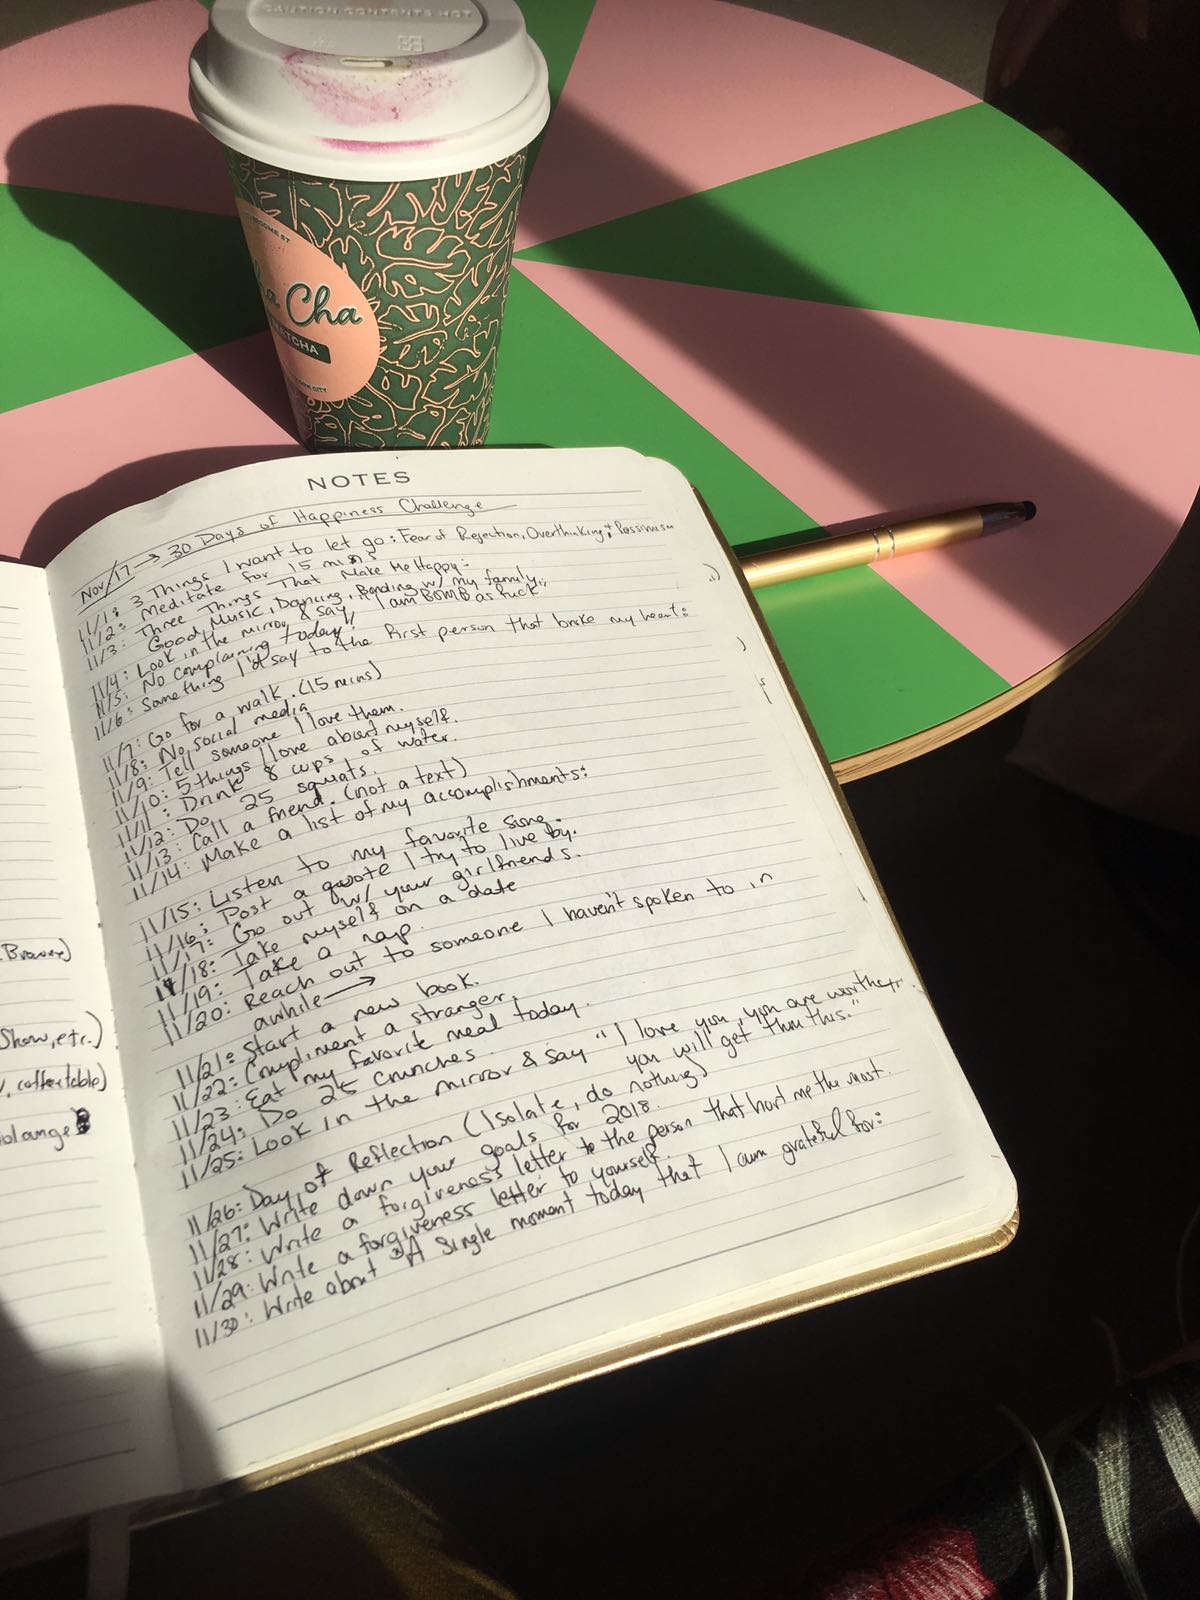 CAUTION CONTENTS HOT
BROOME ST
Cha
YORK CITY
NOTES
Nov/17 → 30 Days of Happiness Challenge
11/1: 3 Things I want to let go: Fear of Rejection, Overthinking + Pessimism
11/2: Meditate for 15 mins
11/3: Three Things That Make Me Happy:
Good Music, Dancing, Bonding w/ my family
11/4: Look in the mirror & say, "I am BOMB as fuck
11/5: No complaining today!!
11/6: Something I'd say to the first person that broke my heart:
11/7: Go for a walk. (15 mins)
11/8: No social media
11/9: Tell someone I love them.
11/10: 5 things I love about myself.
11/11: Drink 8 cups of water.
11/12: Do 25 squats.
11/13: Call a friend. (not a text)
11/14: Make a list of my accomplishments:
11/15: Listen to my favorite song.
11/16: Post a quote I try to live by.
11/17: Go out w/ your girlfriends.
11/18: Take myself on a date
11/19: Take a nap.
11/20: Reach out to someone I haven't spoken to in
awhile →
11/21: Start a new book.
11/22: Compliment a stranger.
11/23: Eat my favorite meal today.
11/24: Do 25 crunches.
11/25: Look in the mirror & say "I love you, you are worthy,
you will get thru this."
11/26: Day of Reflection (Isolate, do nothing)
11/27: Write down your goals for 2018.
11/28: Write a forgiveness letter to the person that hurt me the most.
11/29: Write a forgiveness letter to yourself.
11/30: Write about A single moment today that I am grateful for:
Show, etc.)